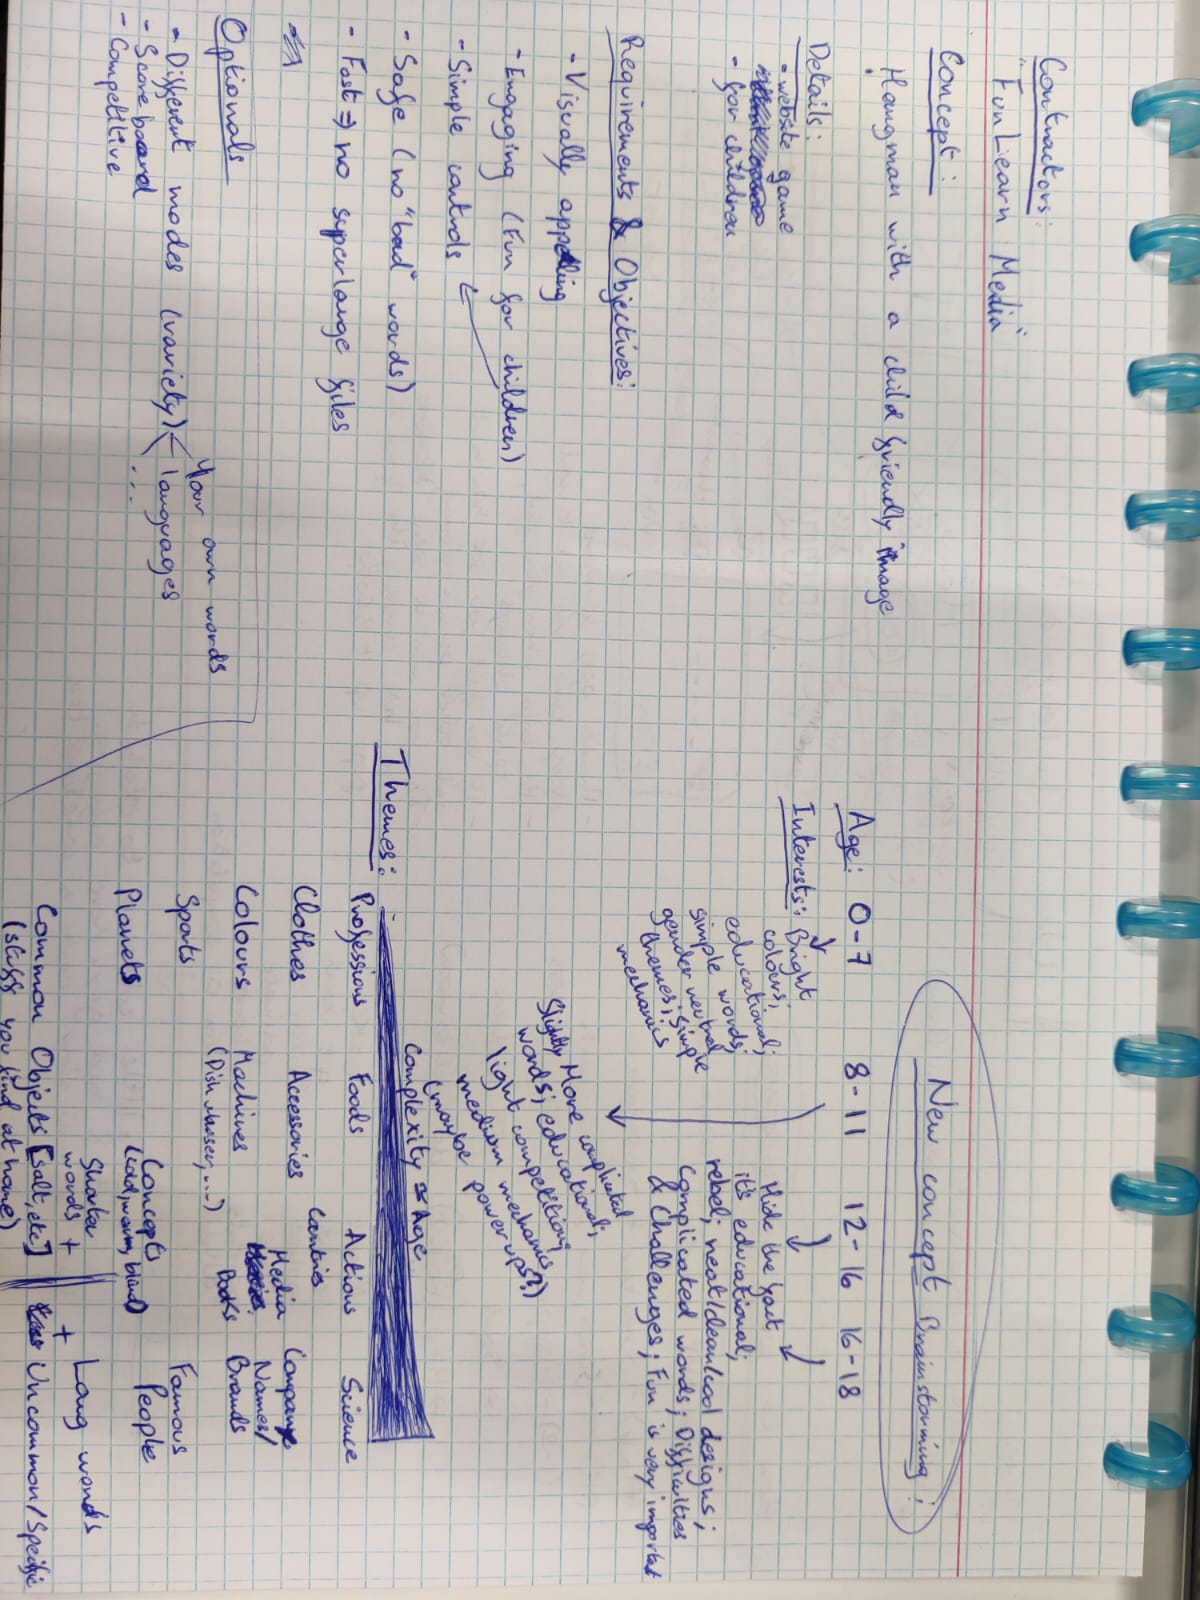 Contractors:
"FunLearn Media"
Concept:
Hangman with a child friendly image
Details:
- website game
- for children
Requirements & Objectives:
- Visually appealing
- Engaging (Fun for children)
- Simple controls
- Safe (no "bad" words)
- Fast => no superlarge files
Optionals
- Different modes (variety)
Your own words
languages
...
- Score board
- Competitive
New concept Brainstorming:
Age: 0-7 8-11 12-16 16-18
Interests:
Bright
colours;
educational;
simple words;
gender neutral
themes; simple
mechanics
Slightly More complicated
words; educational;
light competition;
medium mechanics
(maybe powerups?)
Hide the fact
it's educational;
rebel; neat/clean/cool designs;
Complicated words; Difficulties
& Challenges; Fun is very important
Themes:
Complexity ≈ Age
Professions Foods Actions Science
Countries
Clothes Accessories Media Company
Names/
Colours Machines Books Brands
(Dish washer,...)
Sports Famous
People
Planets Concepts
(cold, warm, blind)
Shorter
words +
Common Objects [salt, etc]
(stuff you find at home)
Long words
+
Uncommon/Specific